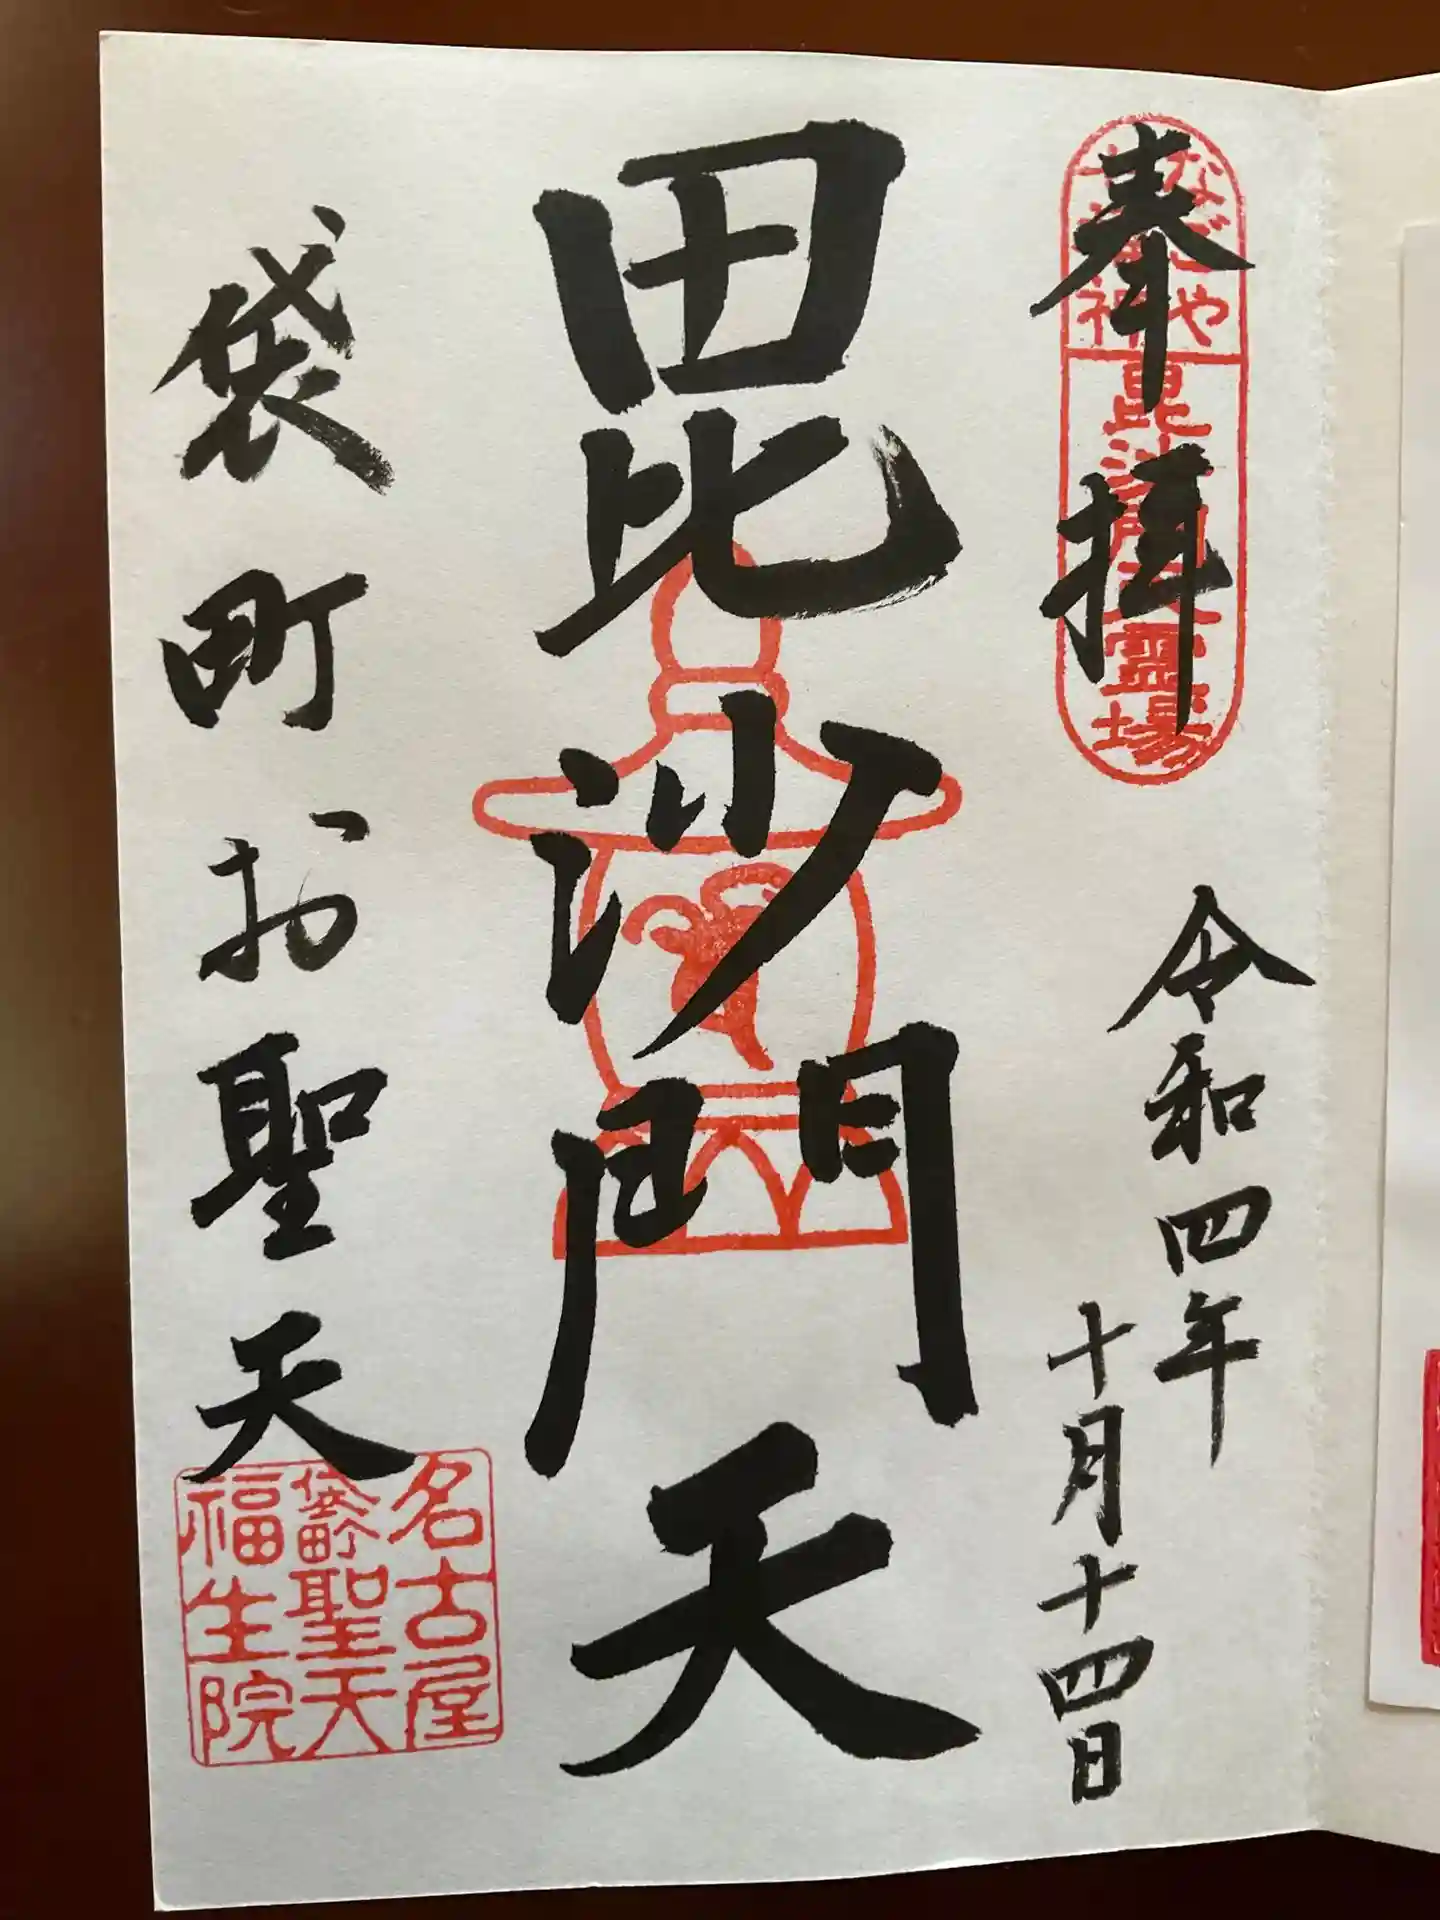 奉拝
なごや
七福神
毘沙門天霊場
令和四年
十月十四日
毘沙門天
袋町お聖天
名古屋
袋町聖天
福生院